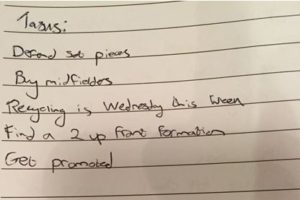 Tasks:
Defend set pieces
Buy midfielder
Recycling is Wednesday this week
Find a 2 up front formation
Get promoted